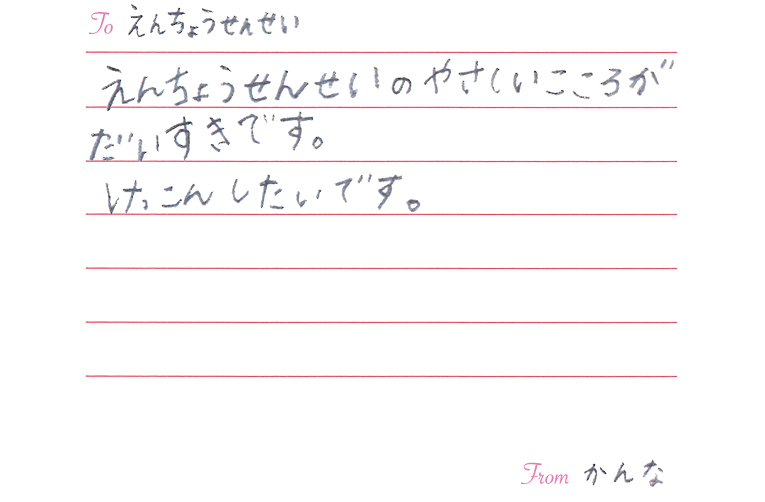 To えんちょうせんせい
えんちょうせんせいのやさしいこころが
だいすきです。
けっこんしたいです。
From かんな